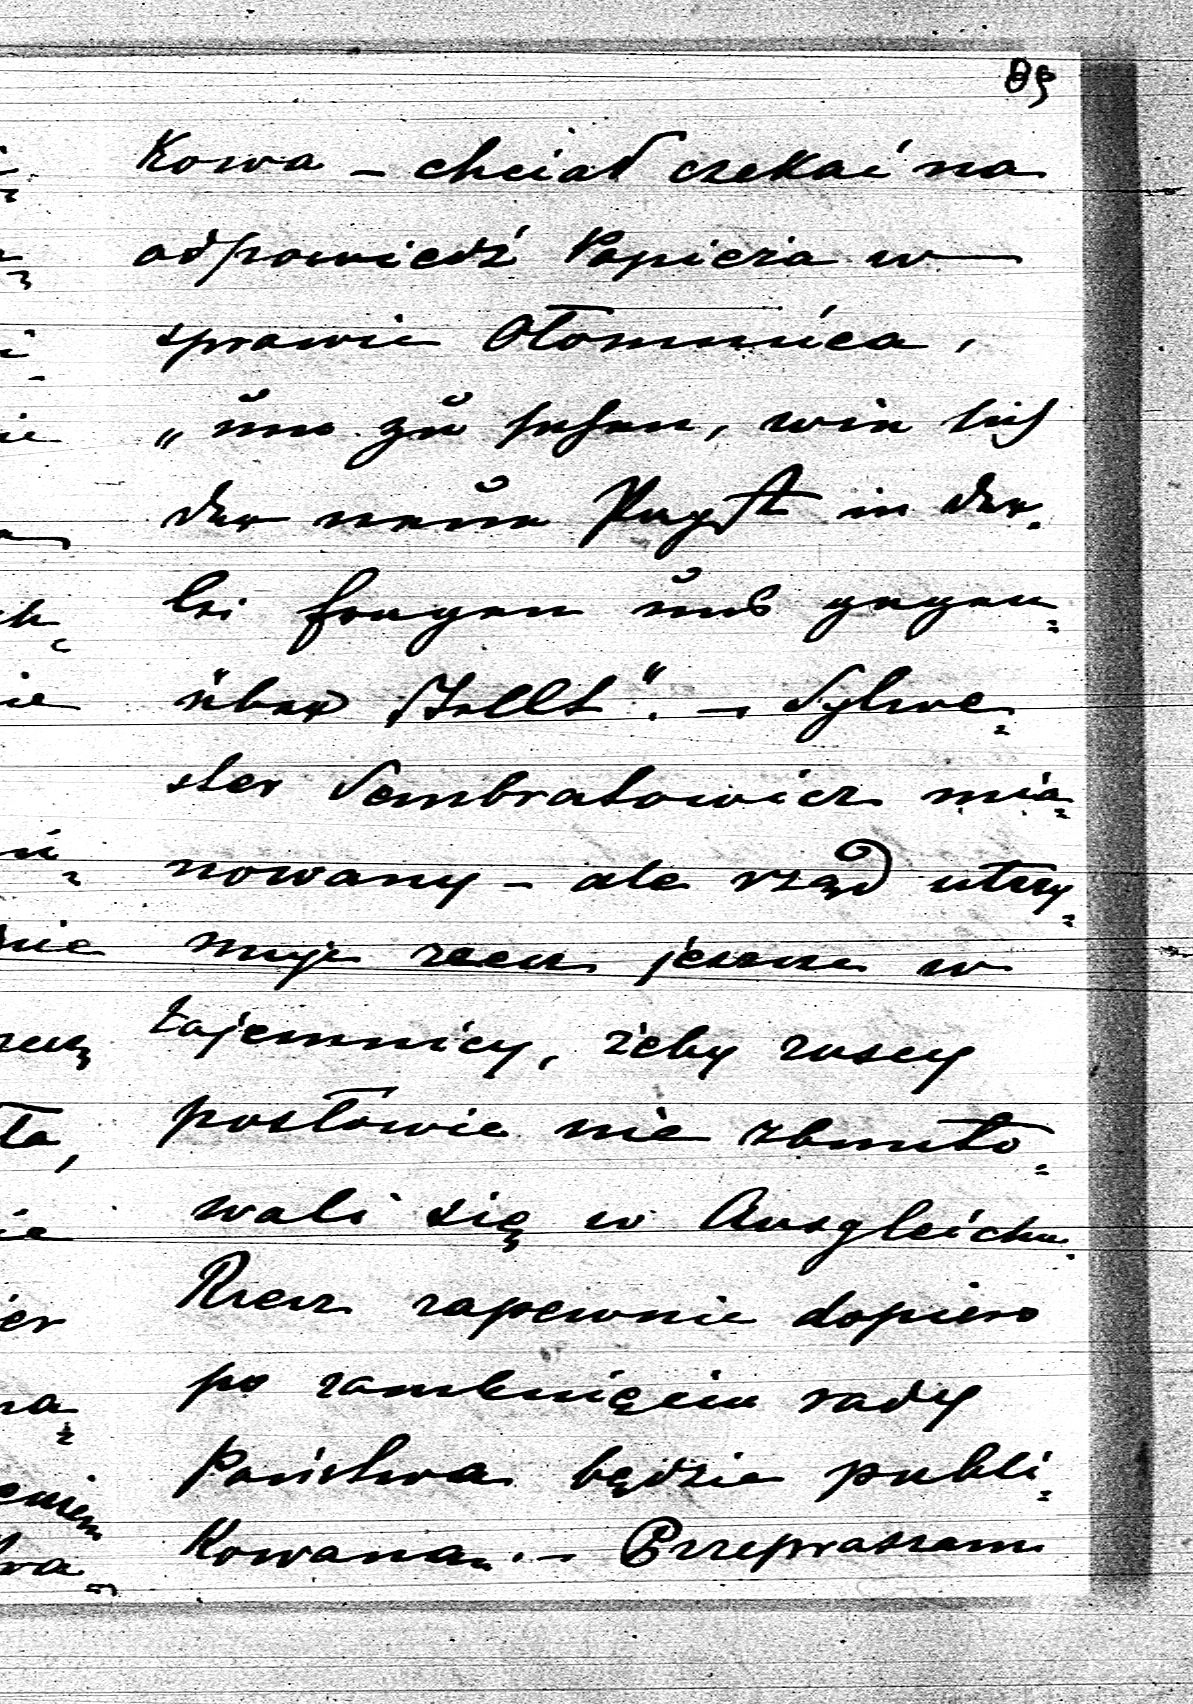 89
kowa – chciał czekać na
odpowiedź Papieża w
sprawie Ołomuńca,
„um zu sehen, wie sich
der neue Papst in der
lei Fragen uns gegen=
über stellt". – Sylwe=
ster Sembratowicz mia=
nowany – ale rząd utrzy=
muje rzecz jeszcze w
tajemnicy, żeby ruscy
posłowie nie zbunto=
wali się w Ausgleichu.
Rzecz zapewnie dopiero
po zamknięciu rady
Państwa będzie publi=
kowana. – Przepraszam